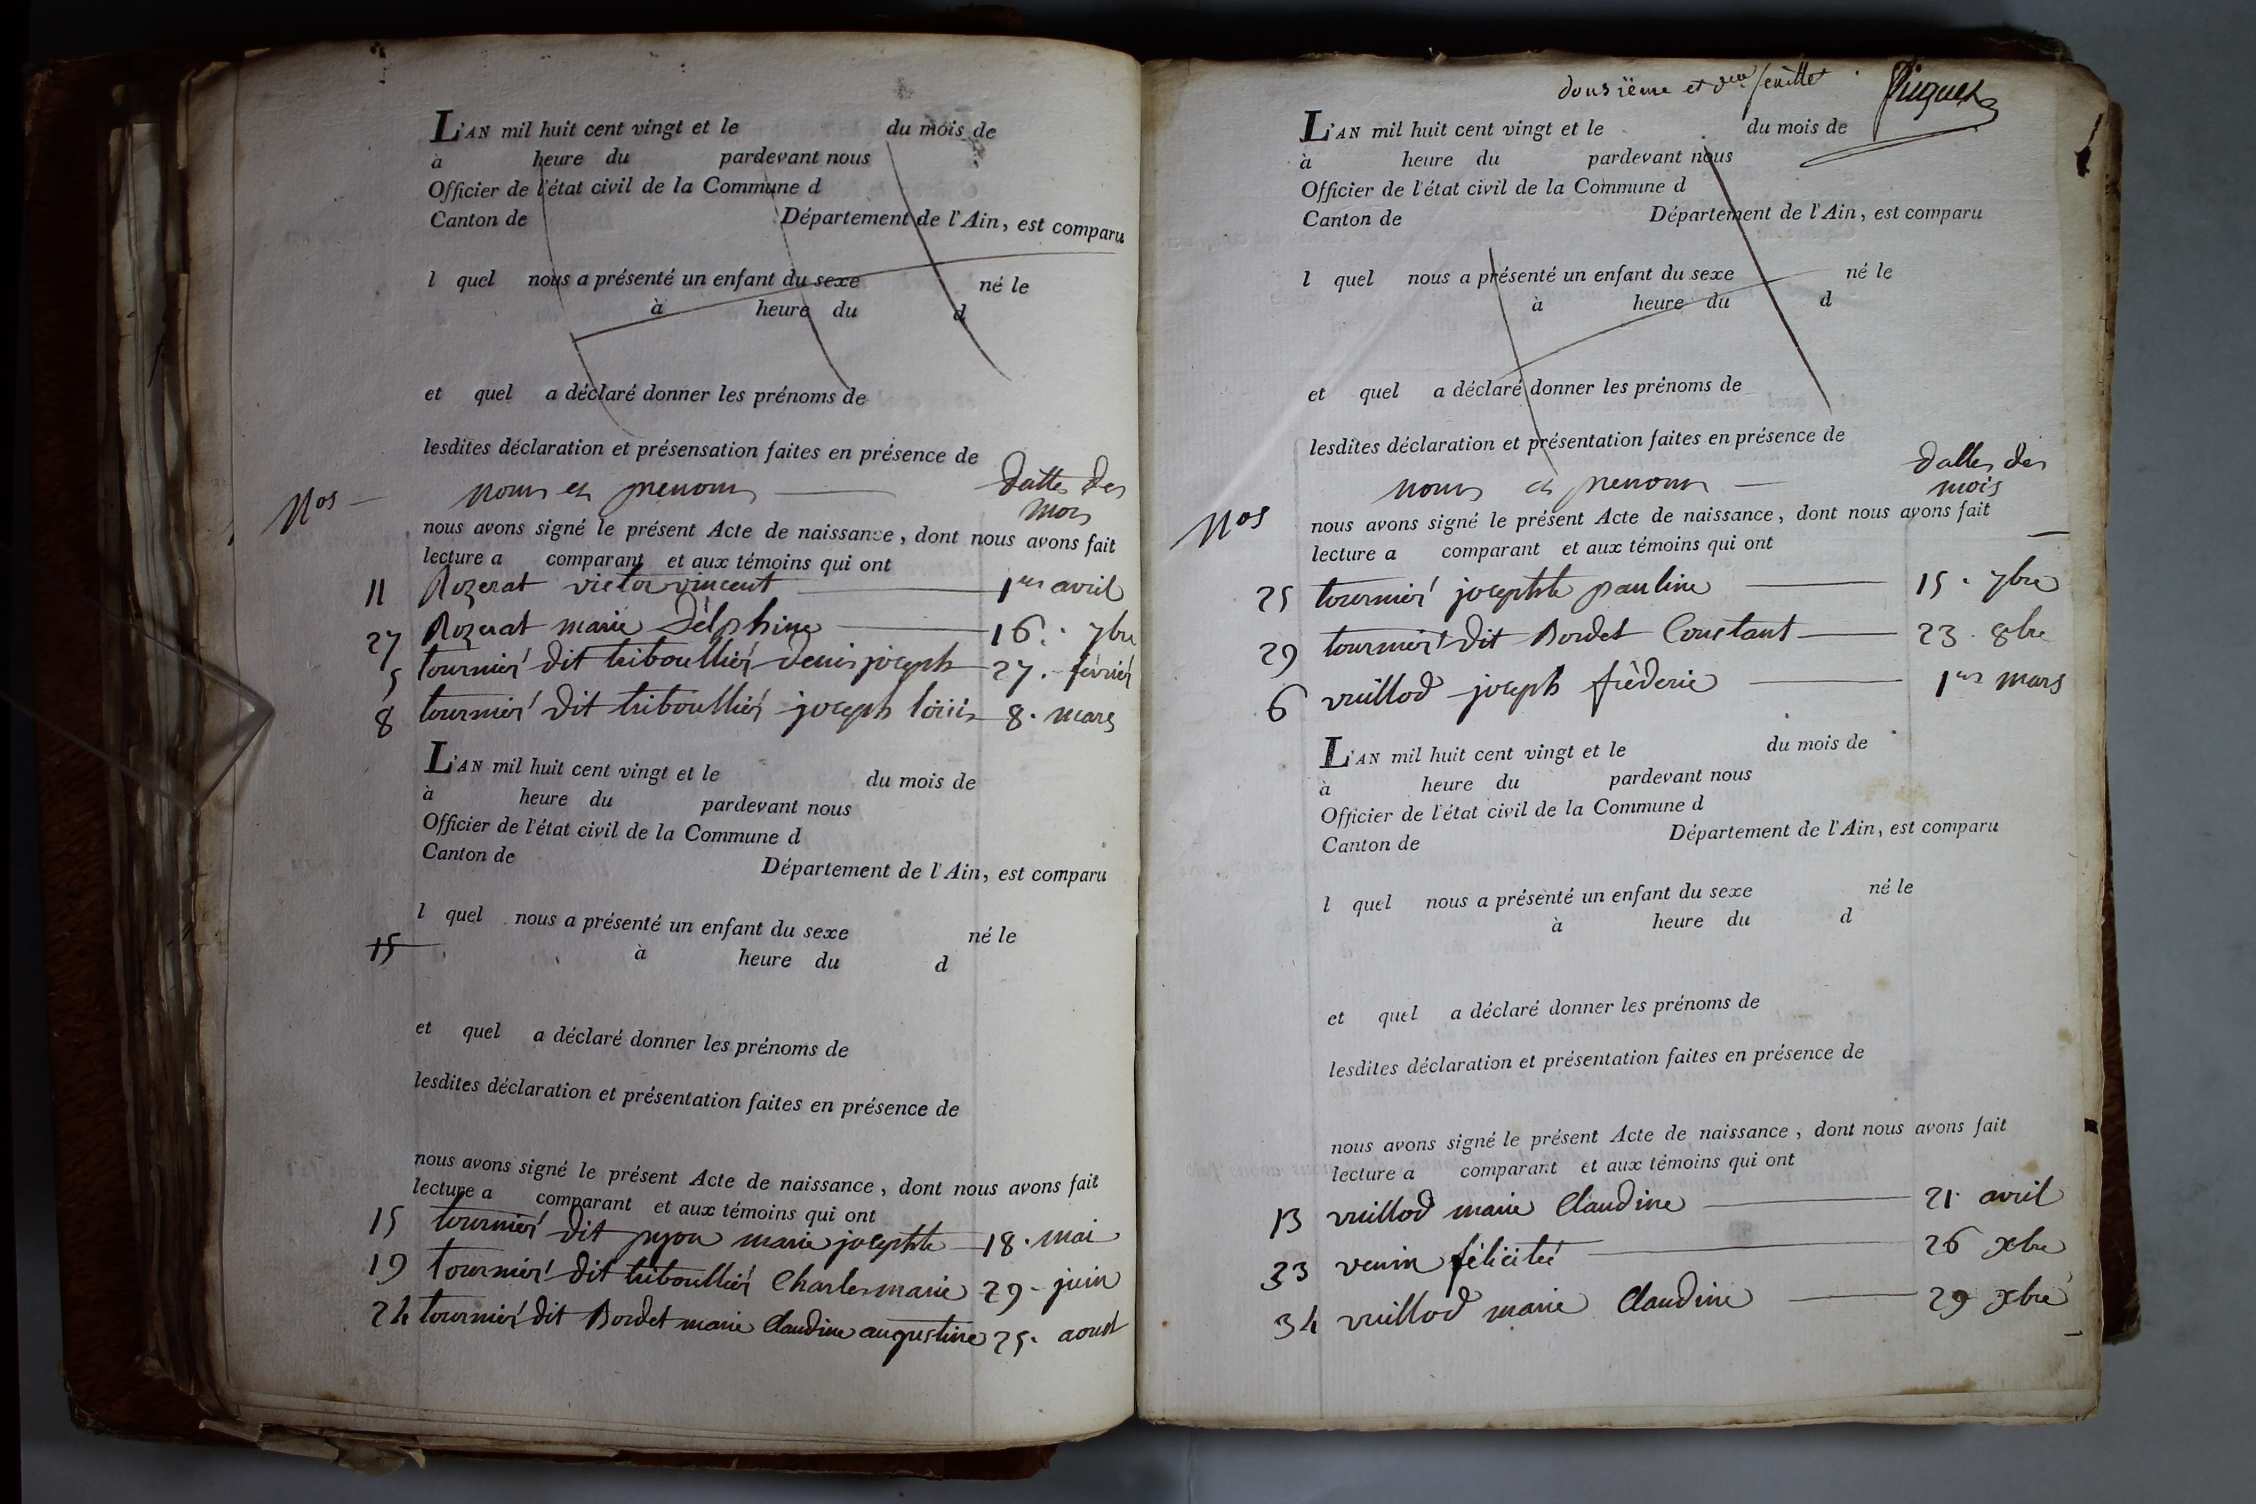 L'AN mil huit cent vingt et le du mois de
à heure du pardevant nous
Officier de l'état civil de la Commune d
Canton de Département de l'Ain, est comparu
l quel nous a présenté un enfant du sexe né le
à heure du d
et quel a déclaré donner les prénoms de
lesdites déclaration et présensation faites en présence de
Nos noms et prenoms dattes des
mois
nous avons signé le présent Acte de naissance, dont nous avons fait
lecture a comparant et aux témoins qui ont
11 Rozerat victor vincent 1er avril
27 Rozerat marie Délphine 16. 7bre
5 tournier dit triboullier denis joseph 27. février
8 tournier dit triboullier joseph loüis 8. mars
L'AN mil huit cent vingt et le du mois de
à heure du pardevant nous
Officier de l'état civil de la Commune d
Canton de Département de l'Ain, est comparu
l quel nous a présenté un enfant du sexe né le
15 à heure du d
et quel a déclaré donner les prénoms de
lesdites déclaration et présentation faites en présence de
nous avons signé le présent Acte de naissance, dont nous avons fait
lecture a comparant et aux témoins qui ont
15 tournier dit marie josephte 18. mai
19 tournier dit triboullier Charles marie 29. juin
24 tournier dit Bordet marie Claudine augustine 25. aoust
dousiéme et feuillet
L'AN mil huit cent vingt et le du mois de
à heure du pardevant nous
Officier de l'état civil de la Commune d
Canton de Département de l'Ain, est comparu
l quel nous a présenté un enfant du sexe né le
à heure du d
et quel a déclaré donner les prénoms de
lesdites déclaration et présentation faites en présence de
Nos noms et prenoms dattes des
mois
nous avons signé le présent Acte de naissance, dont nous avons fait
lecture a comparant et aux témoins qui ont
25 tournier josephte pauline 15. 7bre
29 tournier dit Bordet Constant 23. 8bre
6 vuillod joseph fréderic 1er mars
L'AN mil huit cent vingt et le du mois de
à heure du pardevant nous
Officier de l'état civil de la Commune d
Canton de Département de l'Ain, est comparu
l quel nous a présenté un enfant du sexe né le
à heure du d
et quel a déclaré donner les prénoms de
lesdites déclaration et présentation faites en présence de
nous avons signé le présent Acte de naissance, dont nous avons fait
lecture a comparant et aux témoins qui ont
13 vuillod marie Claudine 21. avril
33 venin félicité 26 xbre
34 vuillod marie Claudine 29 xbre